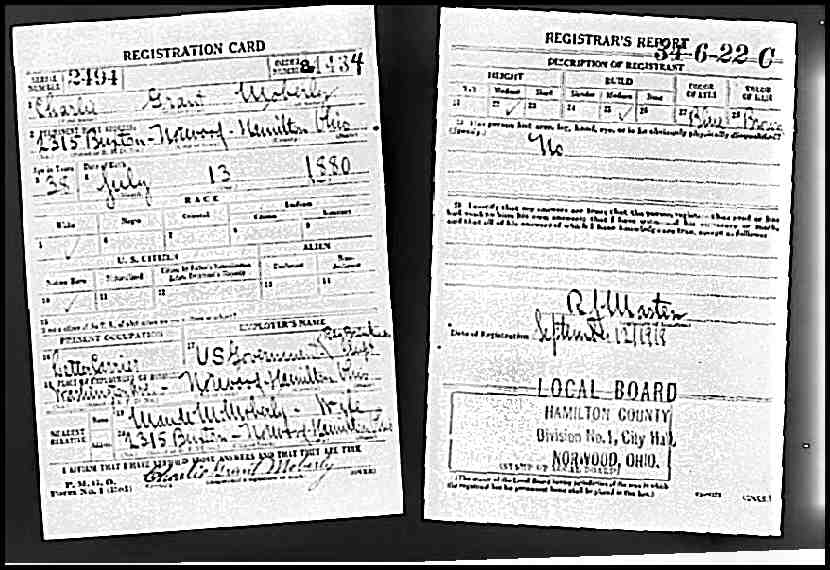 REGISTRATION CARD
SERIAL NUMBER 2494 ORDER NUMBER a1434
1 Charlie Grant Moberly
2 PERMANENT HOME ADDRESS:
2315 Buxton - Norwood - Hamilton Ohio
Age in Years Date of Birth
3 38 4 July 13 1880
RACE
White Negro Oriental Indian
Citizen Noncitizen
5 ✓ 6 7 8 9
U. S. CITIZEN ALIEN
Native Born Naturalized Citizen by Father's Naturalization Before Registrant's Majority Declarant Non-declarant
10 ✓ 11 12 13 14
15
PRESENT OCCUPATION EMPLOYER'S NAME
16 Letter Carrier 17 US Government
18 PLACE OF EMPLOYMENT OR BUSINESS:
Norwood - Hamilton Ohio
NEAREST RELATIVE Name 19 Maude M. Moberly - Wife
Address 20 2315 Buxton - Norwood - Hamilton Ohio
I AFFIRM THAT I HAVE VERIFIED ABOVE ANSWERS AND THAT THEY ARE TRUE
P. M. G. O.
Form No. 1 (Red) Charlie Grant Moberly (OVER)
REGISTRAR'S REPORT
34-6-22 C
DESCRIPTION OF REGISTRANT
HEIGHT BUILD COLOR OF EYES COLOR OF HAIR
Tall Medium Short Slender Medium Stout
21 22 ✓ 23 24 25 ✓ 26 27 Blue 28 Brown
29 Has person lost arm, leg, hand, eye, or is he obviously physically disqualified?
(Specify.)
No
30 I certify that my answers are true; that the person registered has read or has
had read to him his own answers; that I have witnessed his signature or mark,
and that all of his answers of which I have knowledge are true, except as follows:
R. J. Masten
Date of Registration September 12/1918
LOCAL BOARD
HAMILTON COUNTY
Division No. 1, City Hall,
NORWOOD, OHIO.
(STAMP OF LOCAL BOARD)
(The stamp of the Local Board having jurisdiction of the area in which
the registrant has his permanent home shall be placed in this box.)
(OVER)